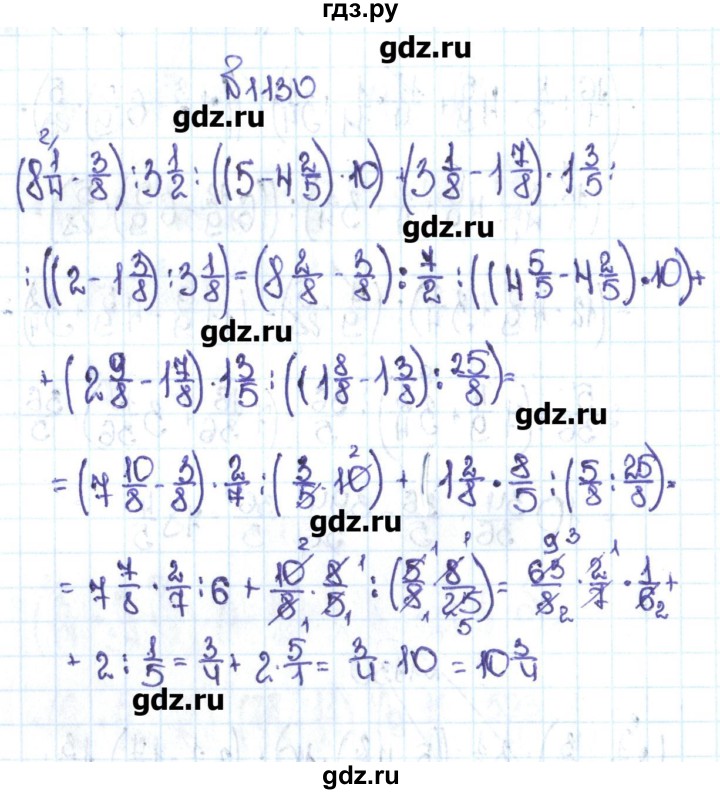 гдз.ру
gdz.ru
№1130
gdz.ru
(8 1/4 - 3/8) : 3 1/2 : ((5 - 4 2/5) · 10) · (3 1/8 - 1 7/8) · 1 3/5 :
gdz.ru
: ((2 - 1 3/8) : 3 1/8) = (8 2/8 - 3/8) : 7/2 : ((4 5/5 - 4 2/5) · 10) +
gdz.ru
+ (2 9/8 - 1 7/8) · 1 3/5 : ((1 8/8 - 1 3/8) : 25/8) =
gdz.ru
= (7 10/8 - 3/8) · 2/7 : (3/5 · 10) + (1 2/8 · 8/5 : (5/8 : 25/8) =
gdz.ru
= 7 7/8 · 2/7 : 6 + 10/8 · 8/5 : (5/8 · 8/25) = 63/8 · 2/7 · 1/6 +
+ 2 : 1/5 = 3/4 + 2 · 5/1 = 3/4 · 10 = 10 3/4
gdz.ru
gdz.ru